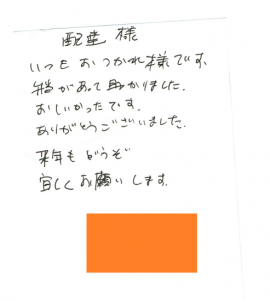 配達 様
いつも おつかれ様です。
弁当があって助かりました。
おいしかったです。
ありがとうございました。
来年も どうぞ
宜しくお願いします。